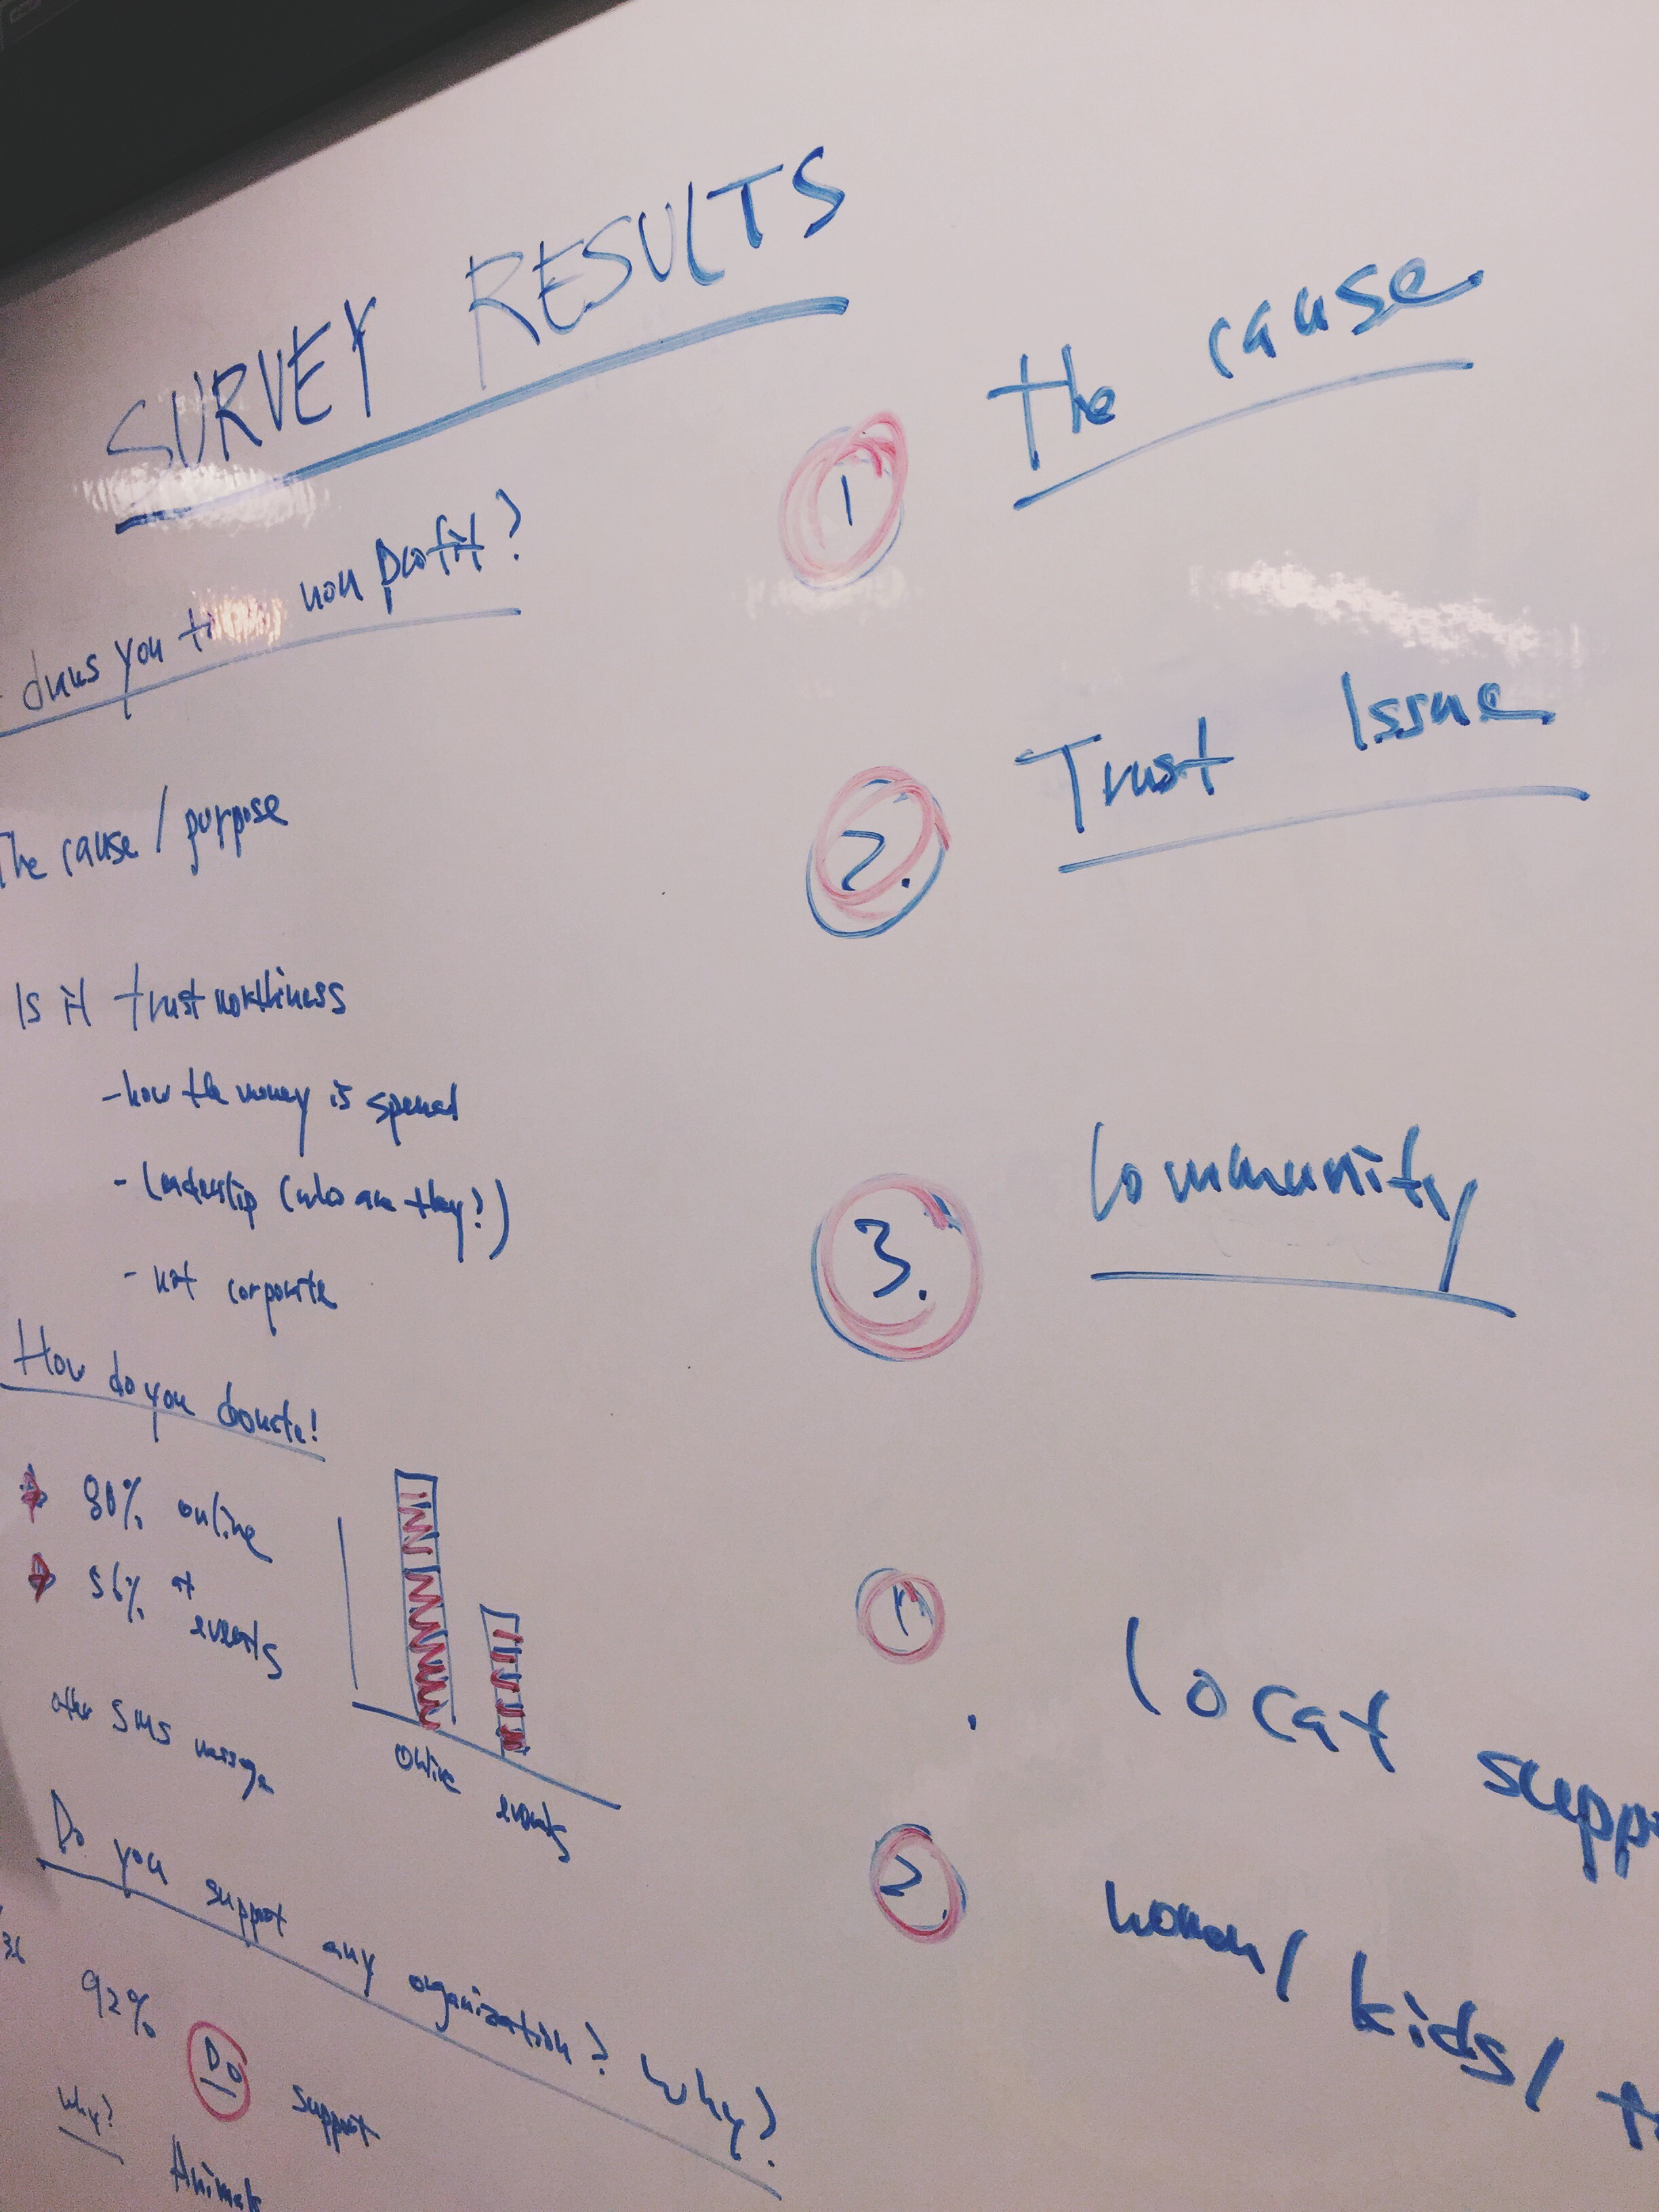 SURVEY RESULTS
you non profit?
The cause / purpose
Is it trustworthiness
- how the money is spend
- leadership (who are they?)
- not corporate
How do you donate!
80% online
56% at
events
other SMS
online
events
Do you support any organization? Why?
92% Do support
Why?
Animals
1 the cause
2. Trust Issue
3. Community
1 local
2. kids/